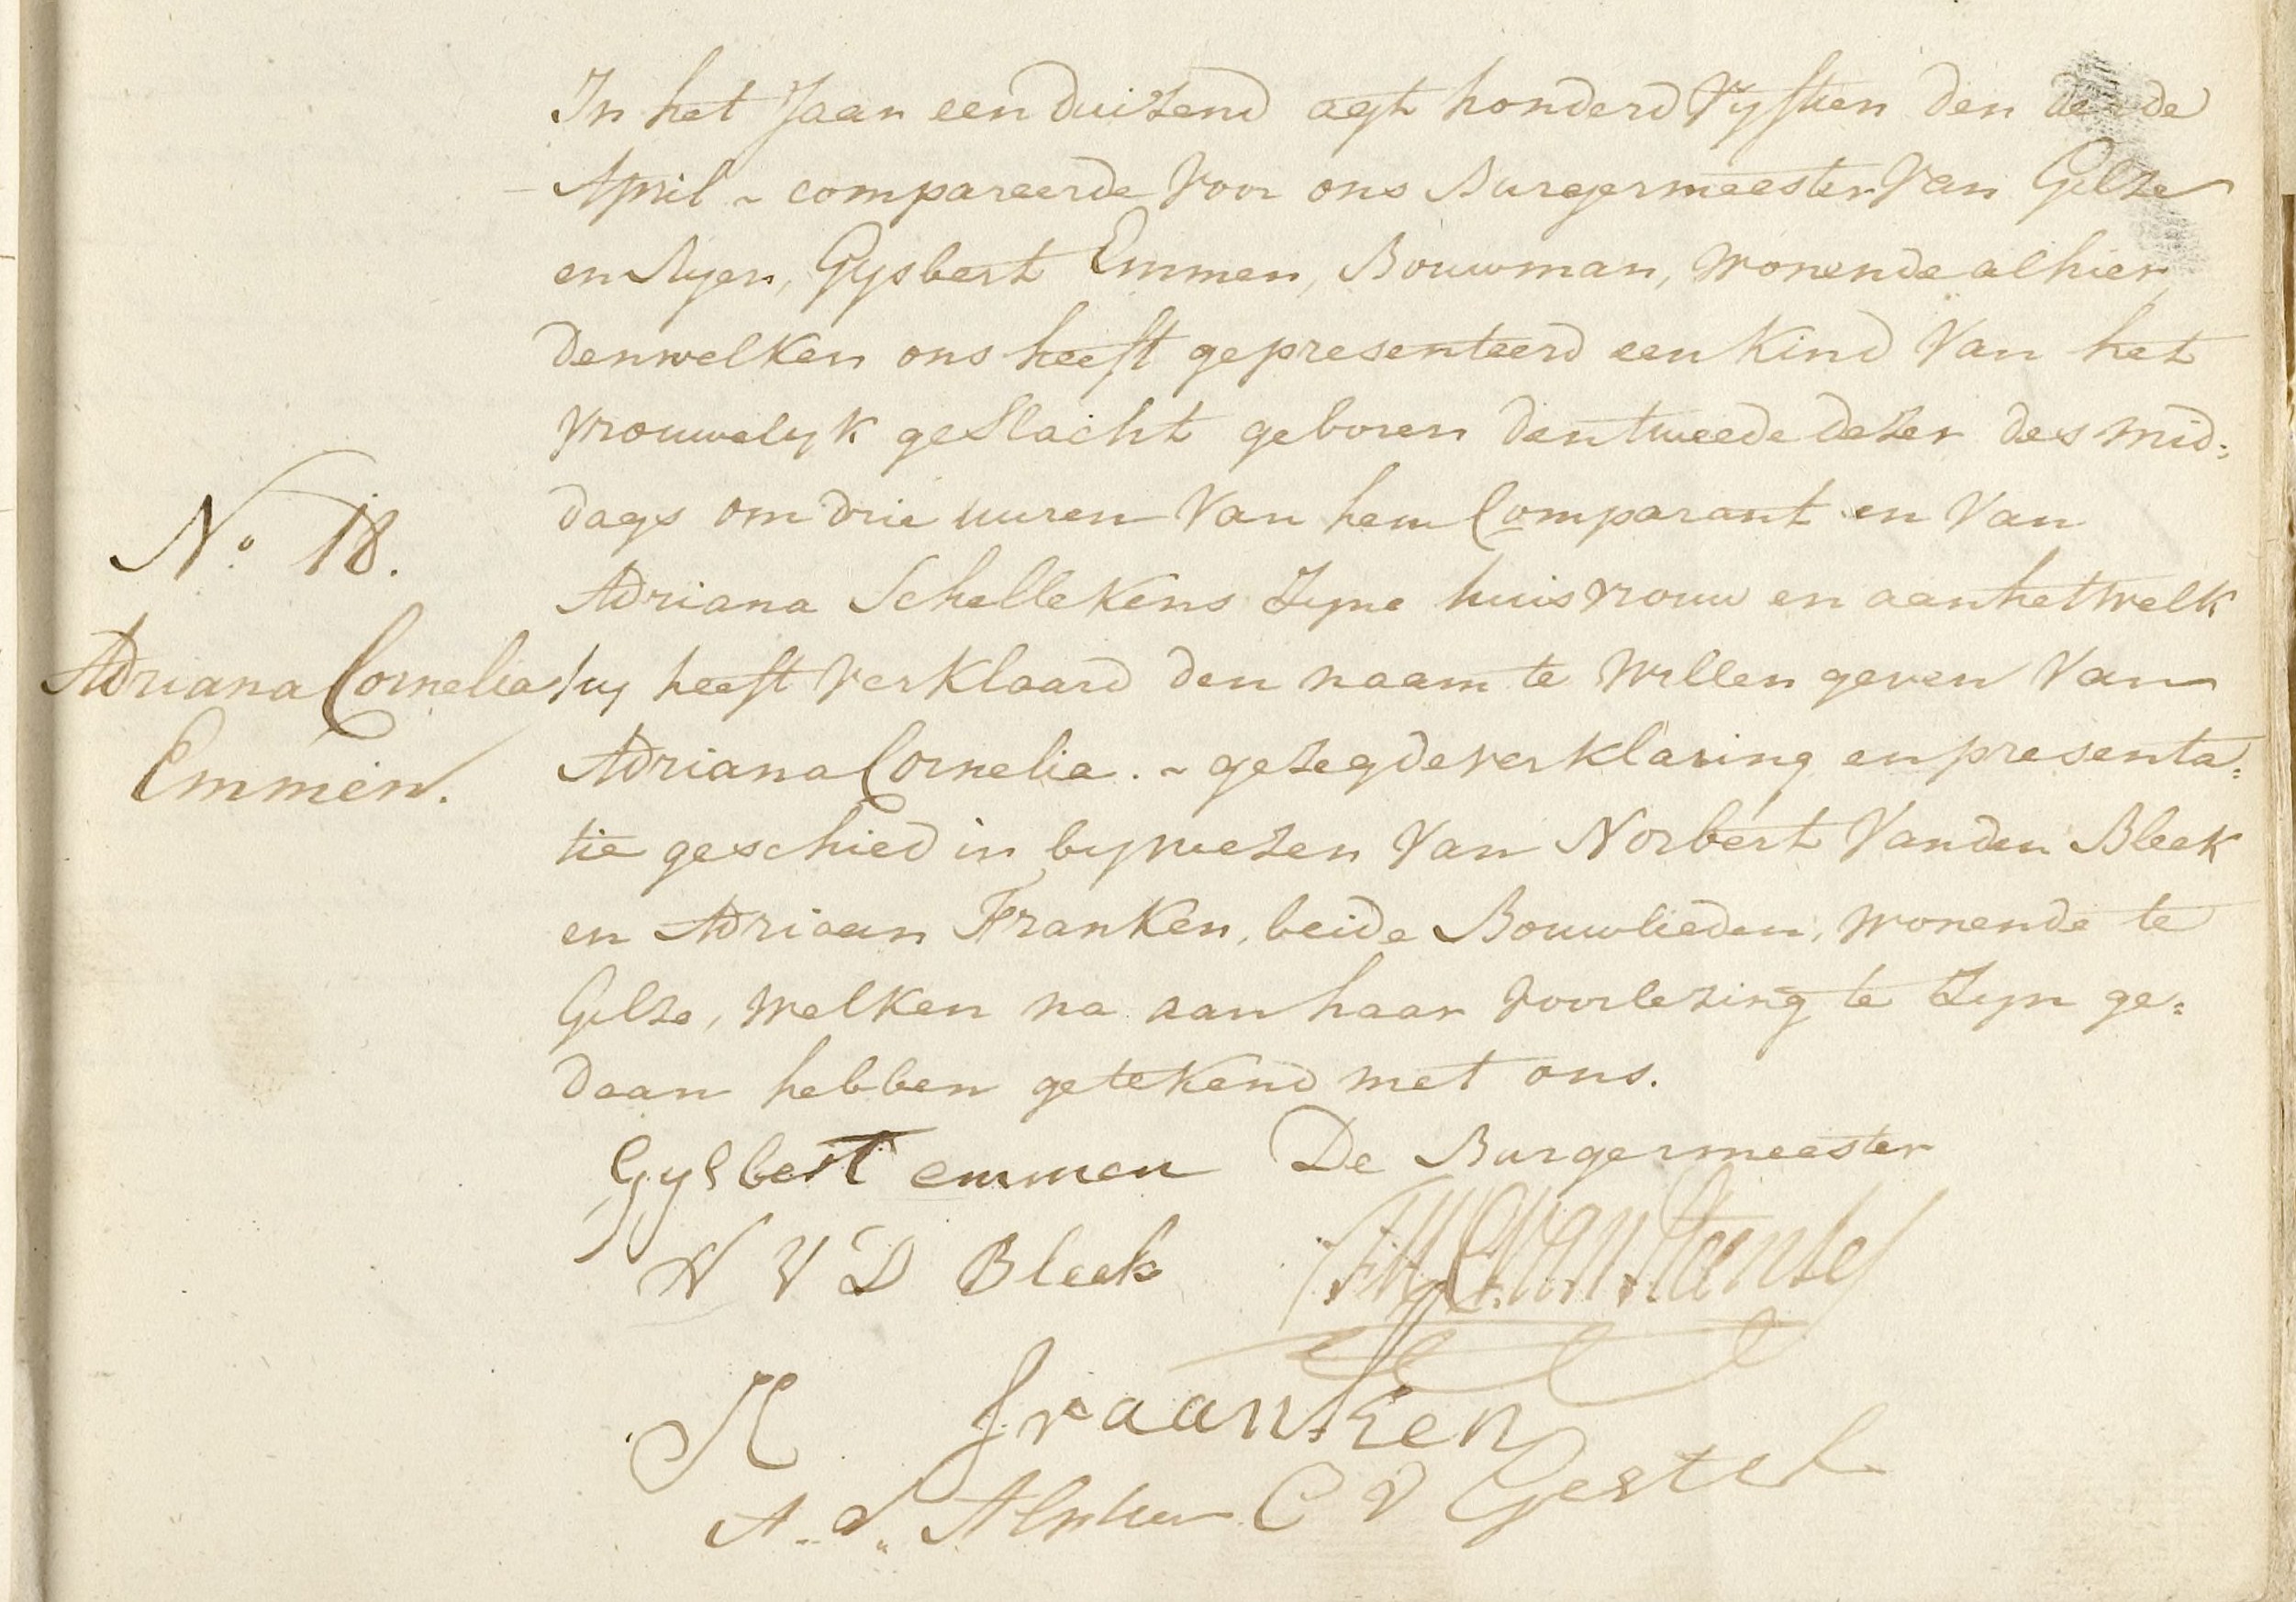 In het Jaar een duizend agt honderd Vyftien den derde
April ~ compareerde Voor ons Burgermeester Van Gilze
en Ryen, Gysbert Emmen, Bouwman, wonende alhier,
denwelken ons heeft gepresenteerd een Kind Van het
Vrouwelyk geslacht geboren den tweede dezer des mid:
dags om drie uuren Van hem Comparant en Van
Adriana Schellekens Zyne huisvrouw en aan het welk
hy heeft Verklaard den naam te Willen geven Van
Adriana Cornelia. ~ gezegde verklaring en presenta:
tie geschied in bywezen Van Norbert Vanden Bleek
en Adriaan Franken, beide Bouwlieden, wonende te
Gilze, welken na aan haar Voorlezing te Zyn ge:
daan hebben getekend met ons.
No. 18.
Adriana Cornelia
Emmen.
Gysbert emmen De Burgermeester
N V D Bleek
A fraanken
C V Gestel